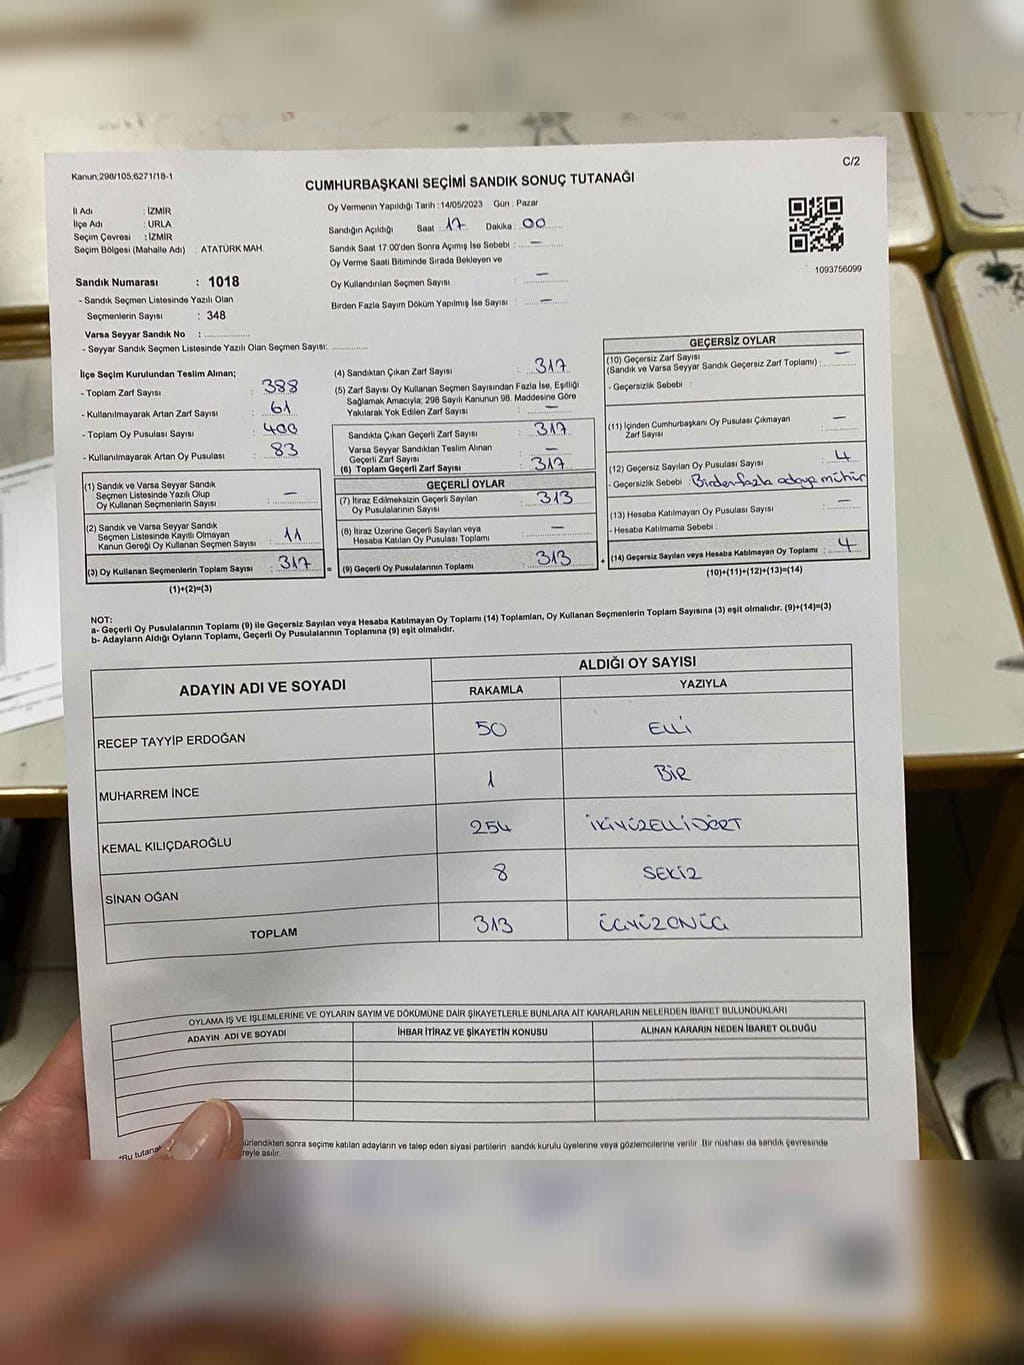 Kanun,298/105,6271/18-1
C/2
CUMHURBAŞKANI SEÇİMİ SANDIK SONUÇ TUTANAĞI
İl Adı : İZMİR
İlçe Adı : URLA
Seçim Çevresi : İZMİR
Seçim Bölgesi (Mahalle Adı) : ATATÜRK MAH.
Oy Vermenin Yapıldığı Tarih : 14/05/2023 Gün : Pazar
Sandığın Açıldığı Saat : 17 Dakika : 00
Sandık Saat 17:00'den Sonra Açımış İse Sebebi : —
Oy Verme Saati Bitiminde Sırada Bekleyen ve
Oy Kullandırılan Seçmen Sayısı : —
Birden Fazla Sayım Döküm Yapılmış İse Sayısı : —
1093756099
Sandık Numarası : 1018
- Sandık Seçmen Listesinde Yazılı Olan
Seçmenlerin Sayısı : 348
Varsa Seyyar Sandık No :
- Seyyar Sandık Seçmen Listesinde Yazılı Olan Seçmen Sayısı:
İlçe Seçim Kurulundan Teslim Alınan;
- Toplam Zarf Sayısı : 388
- Kullanılmayarak Artan Zarf Sayısı : 61
- Toplam Oy Pusulası Sayısı : 400
- Kullanılmayarak Artan Oy Pusulası : 83
(1) Sandık ve Varsa Seyyar Sandık
Seçmen Listesinde Yazılı Olup
Oy Kullanan Seçmenlerin Sayısı : —
(2) Sandık ve Varsa Seyyar Sandık
Seçmen Listesinde Kayıtlı Olmayan
Kanun Gereği Oy Kullanan Seçmen Sayısı : 11
(3) Oy Kullanan Seçmenlerin Toplam Sayısı : 317
(1)+(2)=(3)
(4) Sandıktan Çıkan Zarf Sayısı : 317
(5) Zarf Sayısı Oy Kullanan Seçmen Sayısından Fazla İse, Eşitliği
Sağlamak Amacıyla; 298 Sayılı Kanunun 98. Maddesine Göre
Yakılarak Yok Edilen Zarf Sayısı : —
Sandıkta Çıkan Geçerli Zarf Sayısı : 317
Varsa Seyyar Sandıktan Teslim Alınan
Geçerli Zarf Sayısı : —
(6) Toplam Geçerli Zarf Sayısı : 317
GEÇERLİ OYLAR
(7) İtiraz Edilmeksizin Geçerli Sayılan
Oy Pusulalarının Sayısı : 313
(8) İtiraz Üzerine Geçerli Sayılan veya
Hesaba Katılan Oy Pusulası Toplamı : —
= (9) Geçerli Oy Pusulalarının Toplamı : 313
GEÇERSİZ OYLAR
(10) Geçersiz Zarf Sayısı
(Sandık ve Varsa Seyyar Sandık Geçersiz Zarf Toplamı) : —
- Geçersizlik Sebebi :
(11) İçinden Cumhurbaşkanı Oy Pusulası Çıkmayan
Zarf Sayısı : —
(12) Geçersiz Sayılan Oy Pusulası Sayısı : 4
- Geçersizlik Sebebi : Birden fazla adaya mühür
(13) Hesaba Katılmayan Oy Pusulası Sayısı : —
- Hesaba Katılmama Sebebi :
+ (14) Geçersiz Sayılan veya Hesaba Katılmayan Oy Toplamı : 4
(10)+(11)+(12)+(13)=(14)
NOT:
a- Geçerli Oy Pusulalarının Toplamı (9) ile Geçersiz Sayılan veya Hesaba Katılmayan Oy Toplamı (14) Toplamları, Oy Kullanan Seçmenlerin Toplam Sayısına (3) eşit olmalıdır. (9)+(14)=(3)
b- Adayların Aldığı Oyların Toplamı, Geçerli Oy Pusulalarının Toplamına (9) eşit olmalıdır.
ADAYIN ADI VE SOYADI
ALDIĞI OY SAYISI
RAKAMLA YAZIYLA
RECEP TAYYİP ERDOĞAN 50 ELLİ
MUHARREM İNCE 1 BİR
KEMAL KILIÇDAROĞLU 254 İKİYÜZELLİDÖRT
SİNAN OĞAN 8 SEKİZ
TOPLAM 313 ÜÇYÜZONÜÇ
OYLAMA İŞ VE İŞLEMLERİNE VE OYLARIN SAYIM VE DÖKÜMÜNE DAİR ŞİKAYETLERLE BUNLARA AİT KARARLARIN NELERDEN İBARET BULUNDUKLARI
ADAYIN ADI VE SOYADI İHBAR İTİRAZ VE ŞİKAYETİN KONUSU ALINAN KARARIN NEDEN İBARET OLDUĞU
*Bu tutanak ürlendikten sonra seçime katılan adayların ve talep eden siyasi partilerin sandık kurulu üyelerine veya gözlemcilerine verilir. Bir nüshası da sandık çevresinde
reyle asılır.